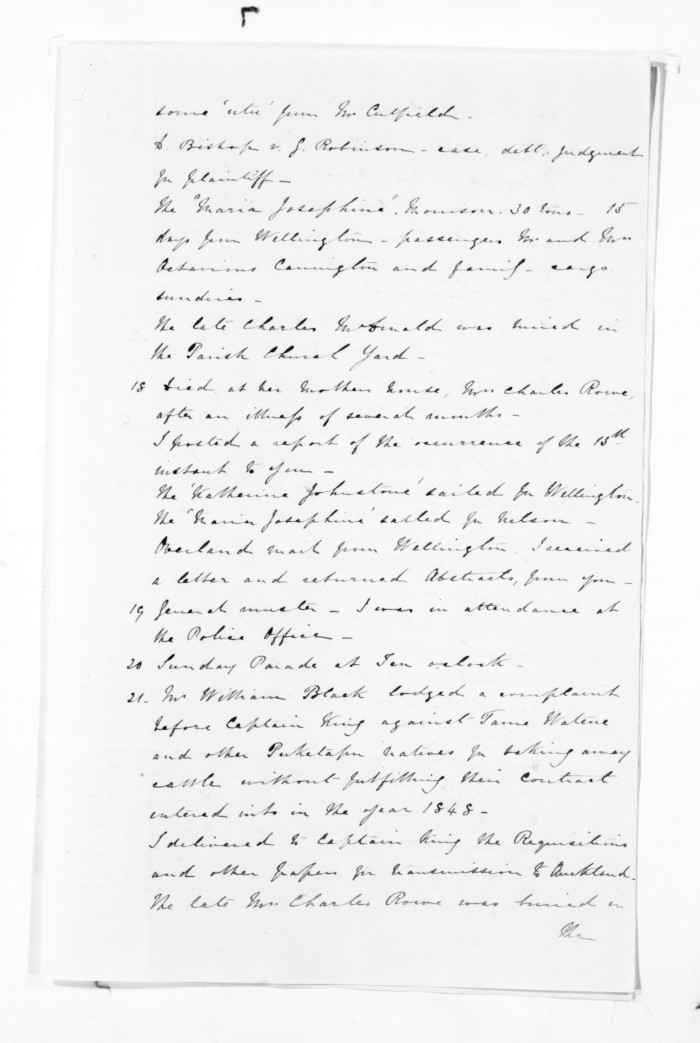 some 'utu' from Mr Cutfield -
D. Bishop v. J. Robinson - case, debt, judgment
for plaintiff -
The "Maria Josephine". Thomson. 30 tons - 15
days from Wellington - passengers Mr and Mrs
Octavious Carrington and family - cargo.
sundries -
The late Charles McDonald was buried in
the Parish Church Yard -
18 Died, at her Mothers house, Mrs Charles Rowe,
after an illness of several months -
I posted a report of the occurrence of the 15th
instant to you -
The 'Katherine Johnstone' sailed for Wellington.
The 'Maria Josephine' sailed for Nelson -
Overland mail from Wellington, I received
a letter and returned Abstracts, from you -
19 General muster - I was in attendance at
the Police Office -
20 Sunday Parade at Ten o'clock -
21. Mr William Black lodged a complaint
before Captain King against Tame Watene
and other Puketapu natives for taking away
cattle without fulfilling their contract
entered into in the year 1848 -
I delivered to Captain King the Requisitions
and other papers for transmission to Auckland.
The late Mrs Charles Rowe was buried in
the